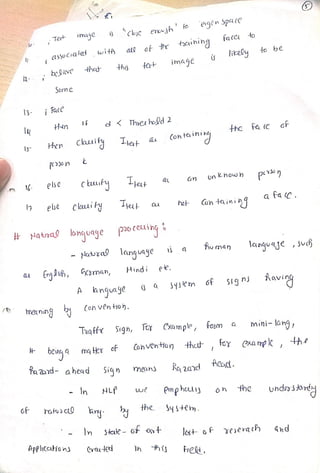 5
Test image is "close enough" to eigen space
, associated with all of the training faces to
12. , believe that this test image is likely to be
some
13. ; Face
14 then if d < Threshold 2
15 then classify Itest as containing the face of
person k
16 else classify Itest as an unknown person
17 else classify Itest as not containing a face.
# Natural language processing :
- Natural language is a human language, such
as English, German, Hindi etc.
A language is a system of signs having
meaning by convention.
Traffic sign, for example, form a mini-lang,
it being a matter of convention that, for example, the
hazard-ahead sign means hazard head.
- In NLP we emphasis on the understandy
of natural lang. by the system.
- In state-of art lot of research and
Applications created in this field.